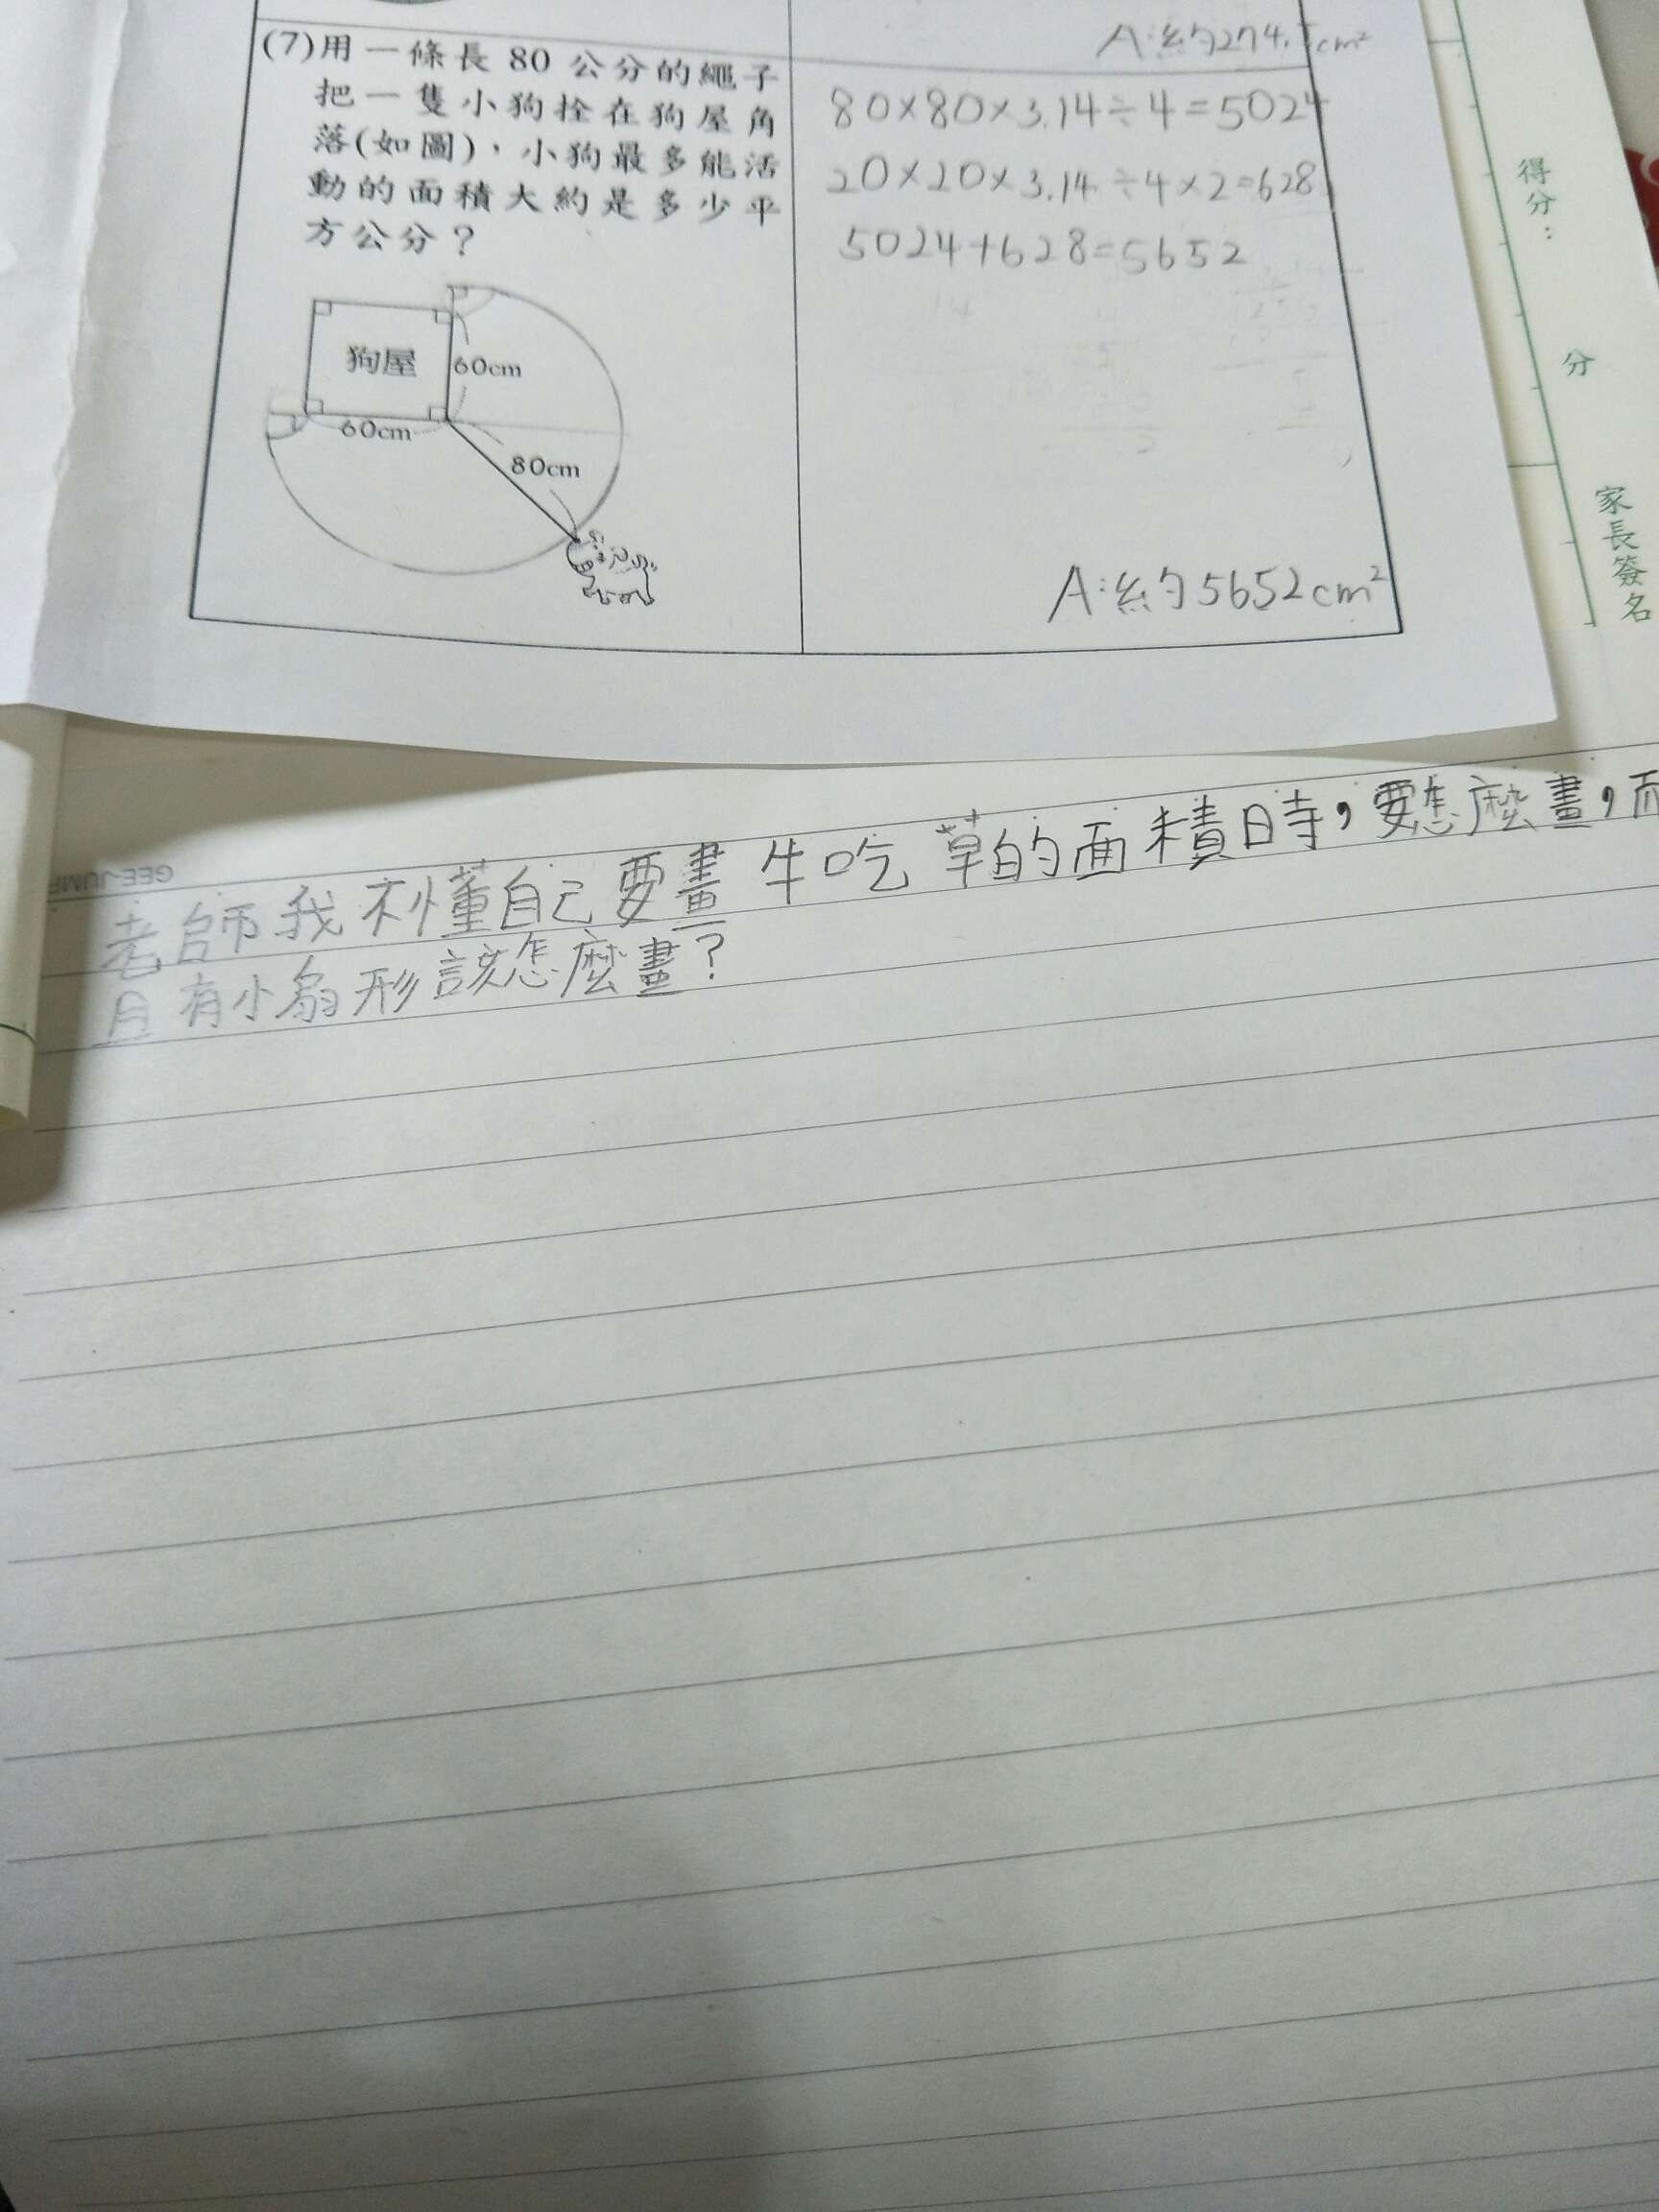 A:約274.5cm²
(7)用一條長 80 公分的繩子
把一隻小狗拴在狗屋角
落(如圖),小狗最多能活
動的面積大約是多少平
方公分?
80×80×3.14÷4=5024
20×20×3.14÷4×2=628
5024+628=5652
狗屋
60cm
60cm
80cm
A:約5652cm²
得分:
分
家長簽名
GEE-JUMP
老師我不懂自己要畫牛吃草的面積時,要怎麼畫,而
且有小扇形該怎麼畫?